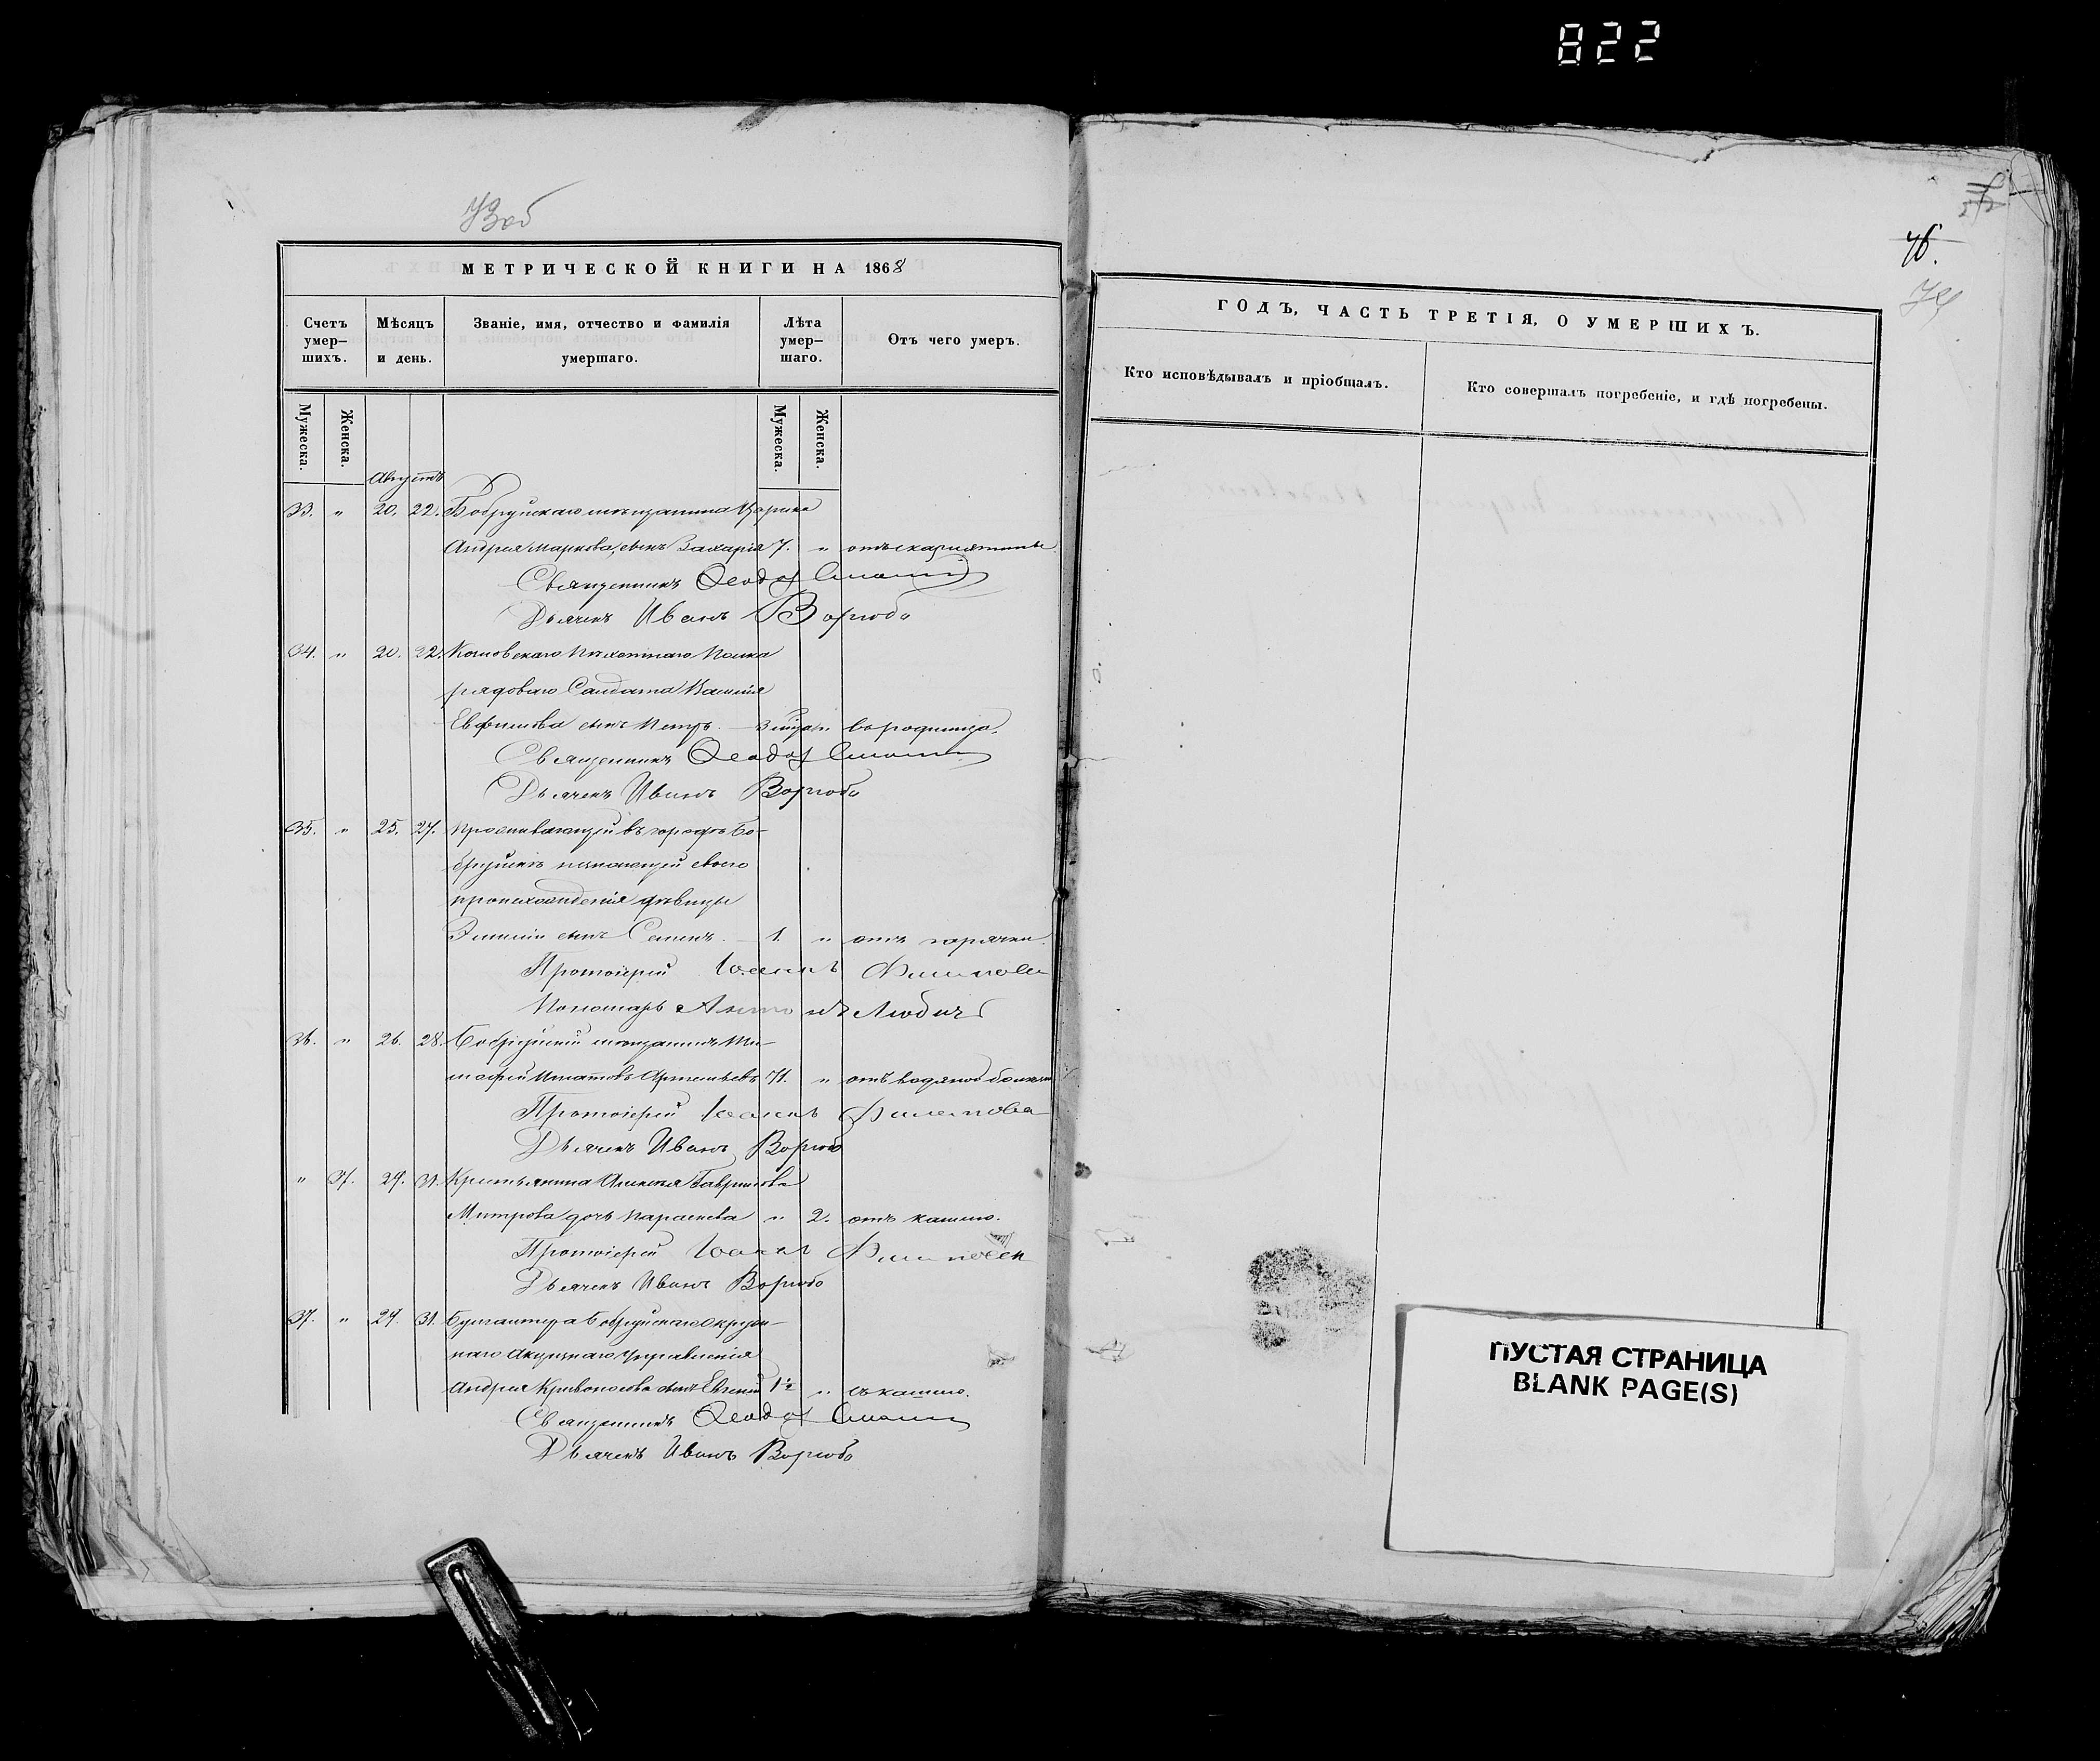 822
73об
МЕТРИЧЕСКОЙ КНИГИ НА 1868
Счетъ умер-шихъ.
Мѣсяцъ и день.
Званіе, имя, отчество и фамилія умершаго.
Лѣта умер-шаго.
Отъ чего умеръ.
Мужеска.
Женска.
Мужеска.
Женска.
Августъ
33. " 20. 22. Бобруйскаго мѣщанина
Андрея Маркова сынъ Захарія 7. " отъ скарлятины
Священникъ
Дьячекъ Иванъ
34. " 20. 22. Пѣхотнаго Полка
рядоваго Солдата Василія
Евфимова сынъ Петръ. "
Священникъ
Дьячекъ Иванъ
35. " 25. 27. Проживающей въ городѣ Бо-
бруйскѣ незнающей своего
происхожденія дѣвицы
сынъ Семенъ. 1. " отъ горячки.
Протоіерей Іоаннъ
Пономарь Антонъ
36. " 26. 28. Бобруйскій мѣщанинъ Ти-
мофей Игнатовъ Артемьевъ 71. " отъ водяной болѣзни
Протоіерей Іоаннъ
Дьячекъ Иванъ
" 37. 29. 31. Крестьянина Алексѣя Гаврилова
Митрова дочь Параскева " 2. отъ кашлю.
Протоіерей Іоаннъ
Дьячекъ Иванъ
37. " 29. 31. Бухгалтера Бобруйскаго Окруж-
наго Акцизнаго Управленія
Андрея Кривоносова сынъ Евгеній 1½ " съ кашлю.
Священникъ
Дьячекъ Иванъ
76.
74
ГОДЪ, ЧАСТЬ ТРЕТІЯ, О УМЕРШИХЪ.
Кто исповѣдывалъ и пріобщалъ.
Кто совершалъ погребеніе, и гдѣ погребены.
ПУСТАЯ СТРАНИЦА
BLANK PAGE(S)